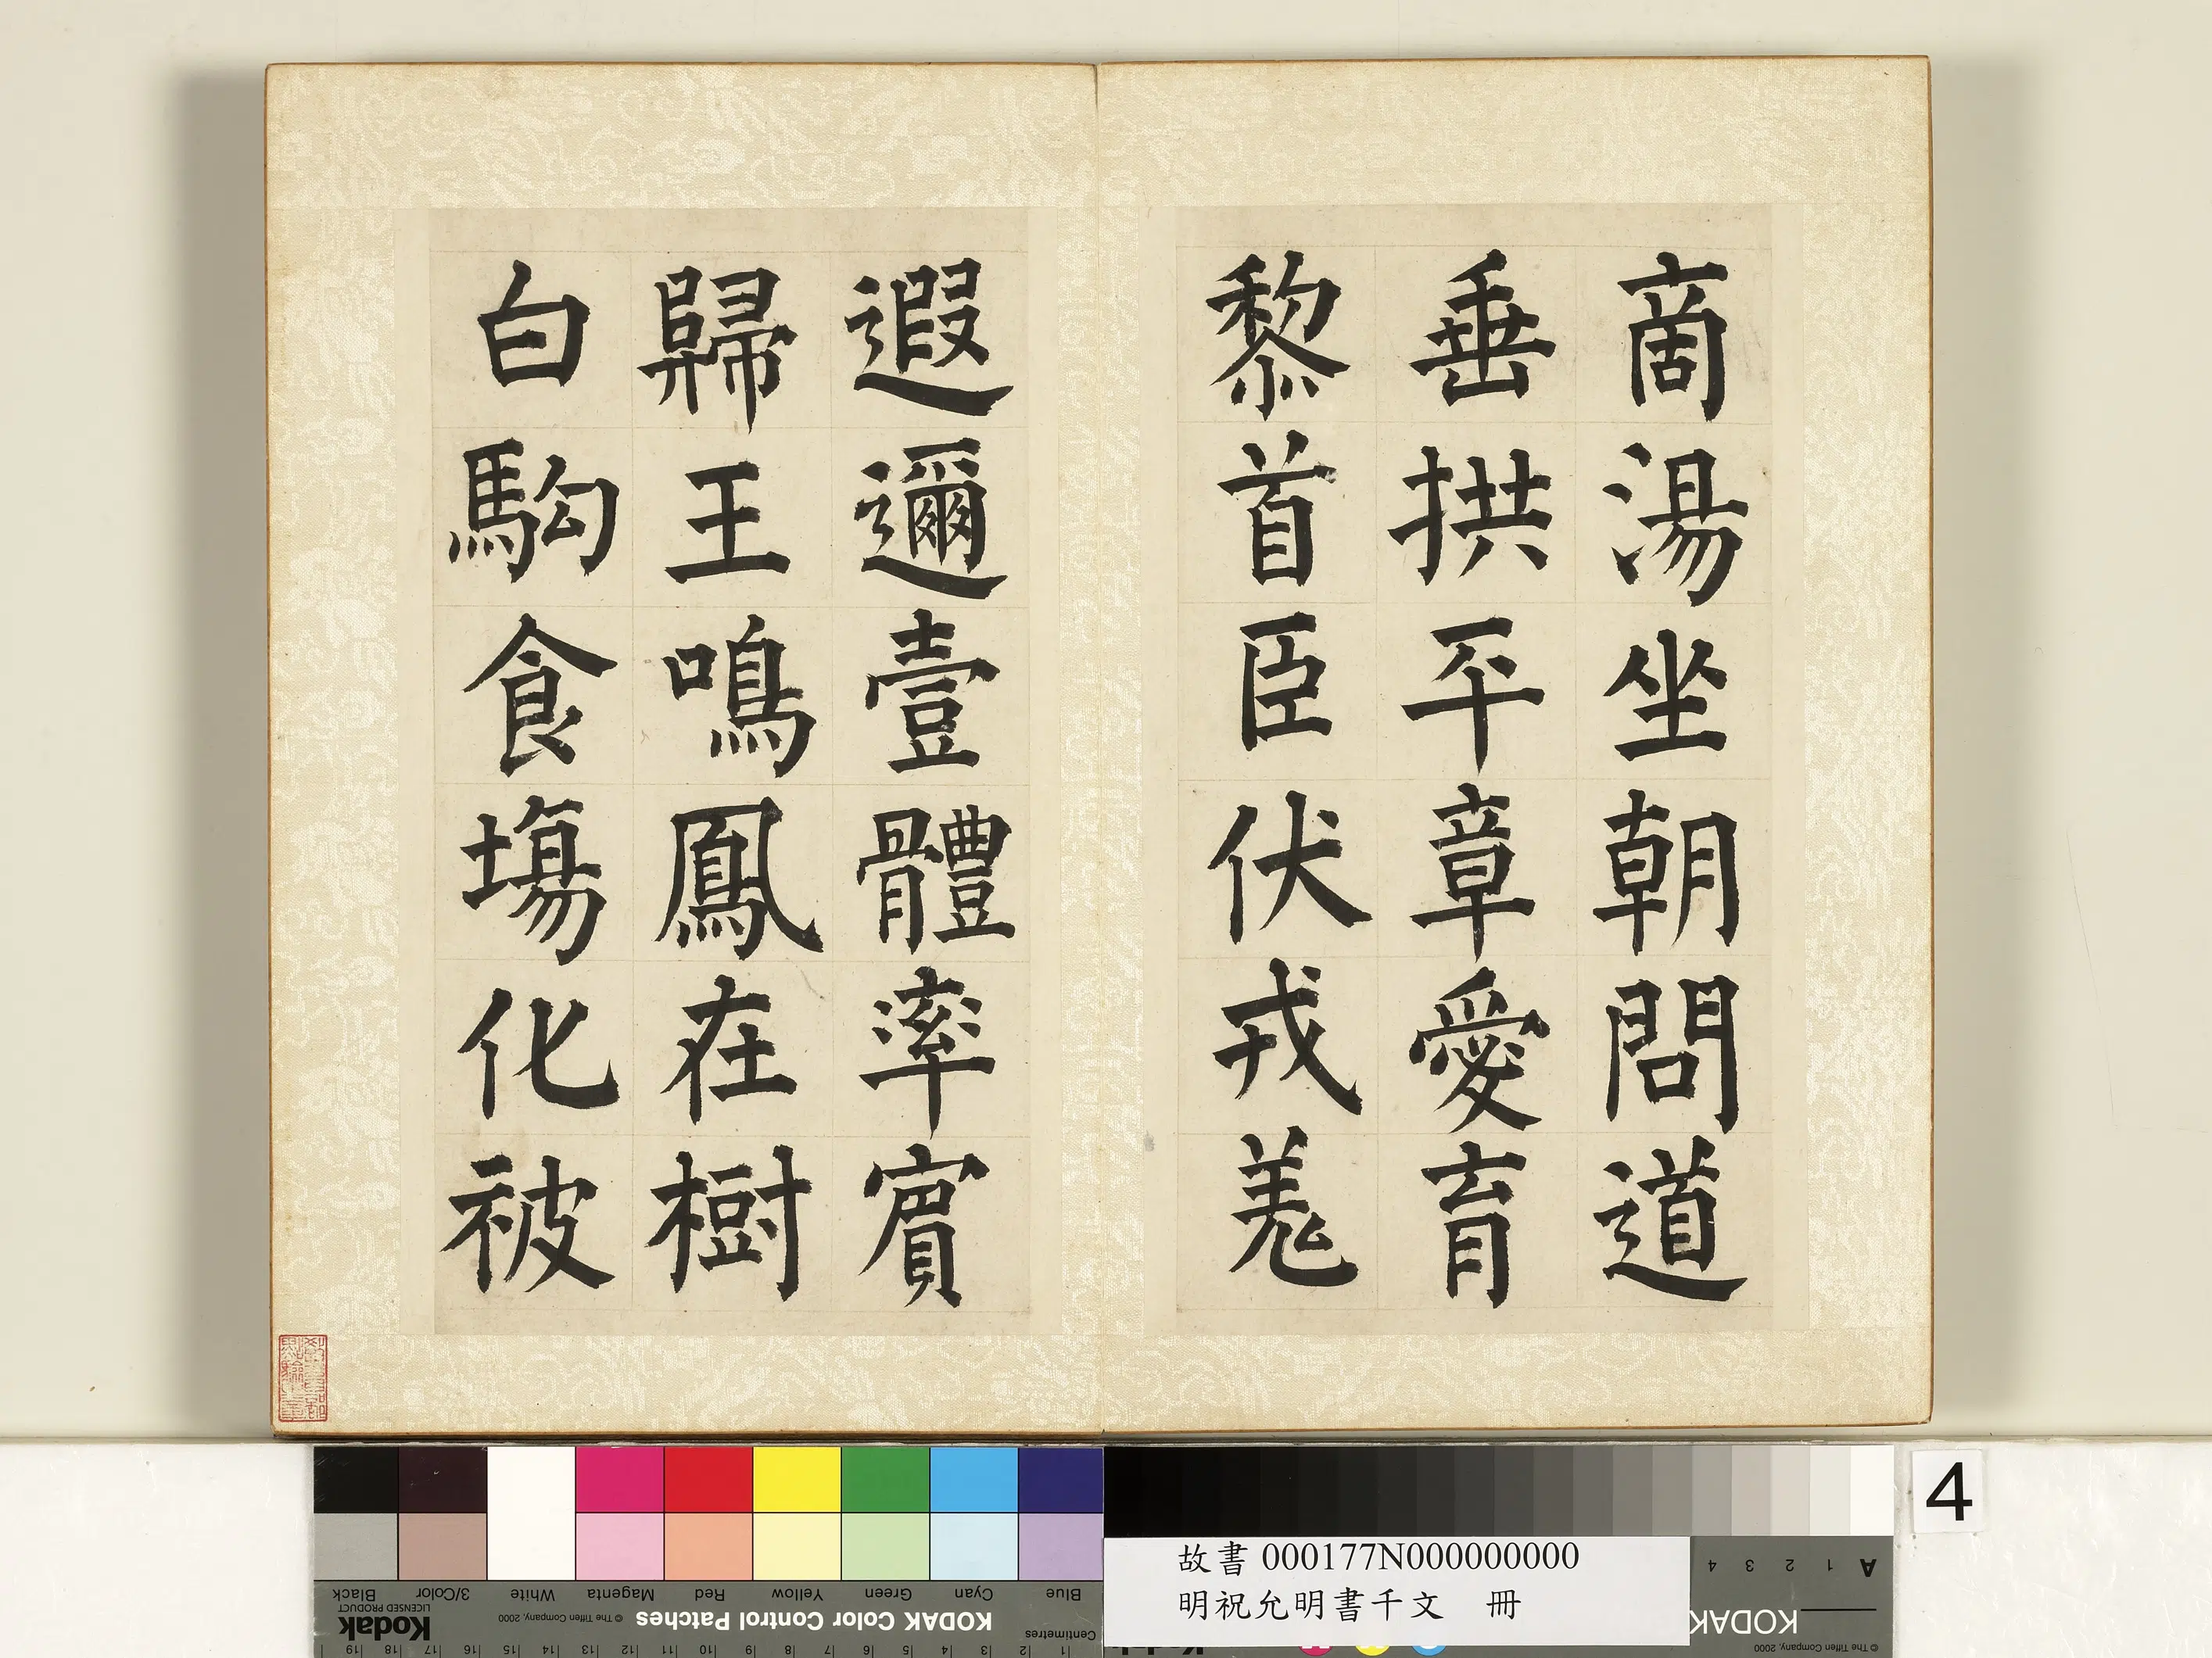 商湯坐朝問道
垂拱平章愛育
黎首臣伏戎羌
遐邇壹體率賓
歸王鳴鳳在樹
白駒食場化被
4
故書 000177N000000000
明祝允明書千文 冊
Black 3/Color White Magenta Red Yellow Green Cyan Blue
Kodak LICENSED PRODUCT © The Tiffen Company, 2000 KODAK Color Control Patches Centimetres
19 18 17 16 15 14 13 12 11 10 9 8 7 6 5 4 3 2 1
A 1 2 3 4
KODAK
© The Tiffen Company, 2000